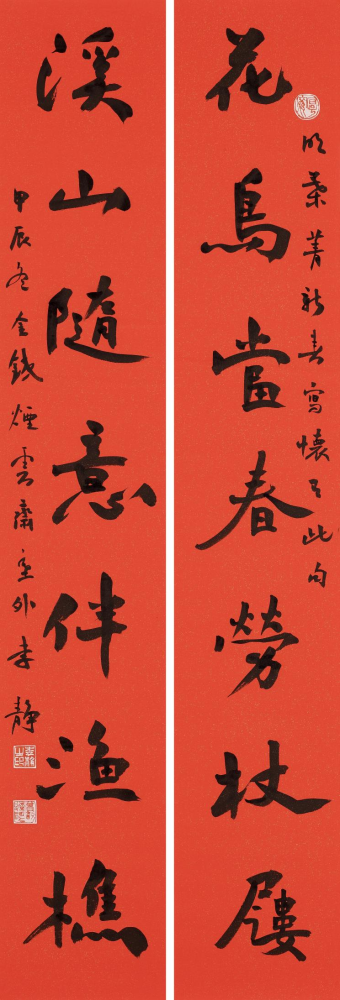 花鳥當春勞杖屨
明葉菁新春寫懷有此句
溪山隨意伴漁樵
甲辰冬金錢煙雲齋主外李靜